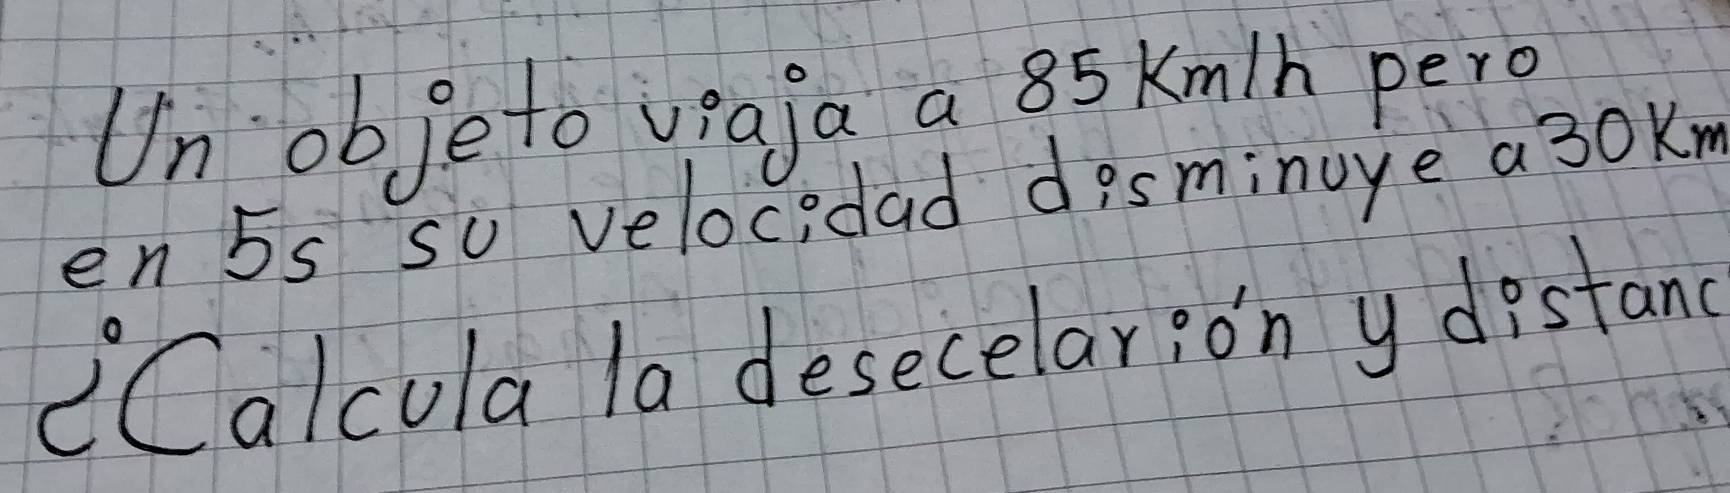 Un objeto viaja a 85 Km/h pero
en 5s su velocidad disminuye a 30 Km
¿Calcula la desecelarión y distanc